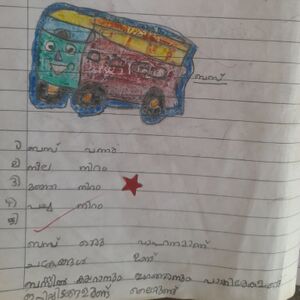 ബസ്
1) ബസ് വന്നു
2) നീല നിറം
3) മഞ്ഞ നിറം
4) പച്ച നിറം
5)
ബസ് ഒരു വാഹനമാണ്
ചക്രങ്ങൾ ഉണ്ട്
ബസ്സിൽ കയറാനും ഇറങ്ങാനും